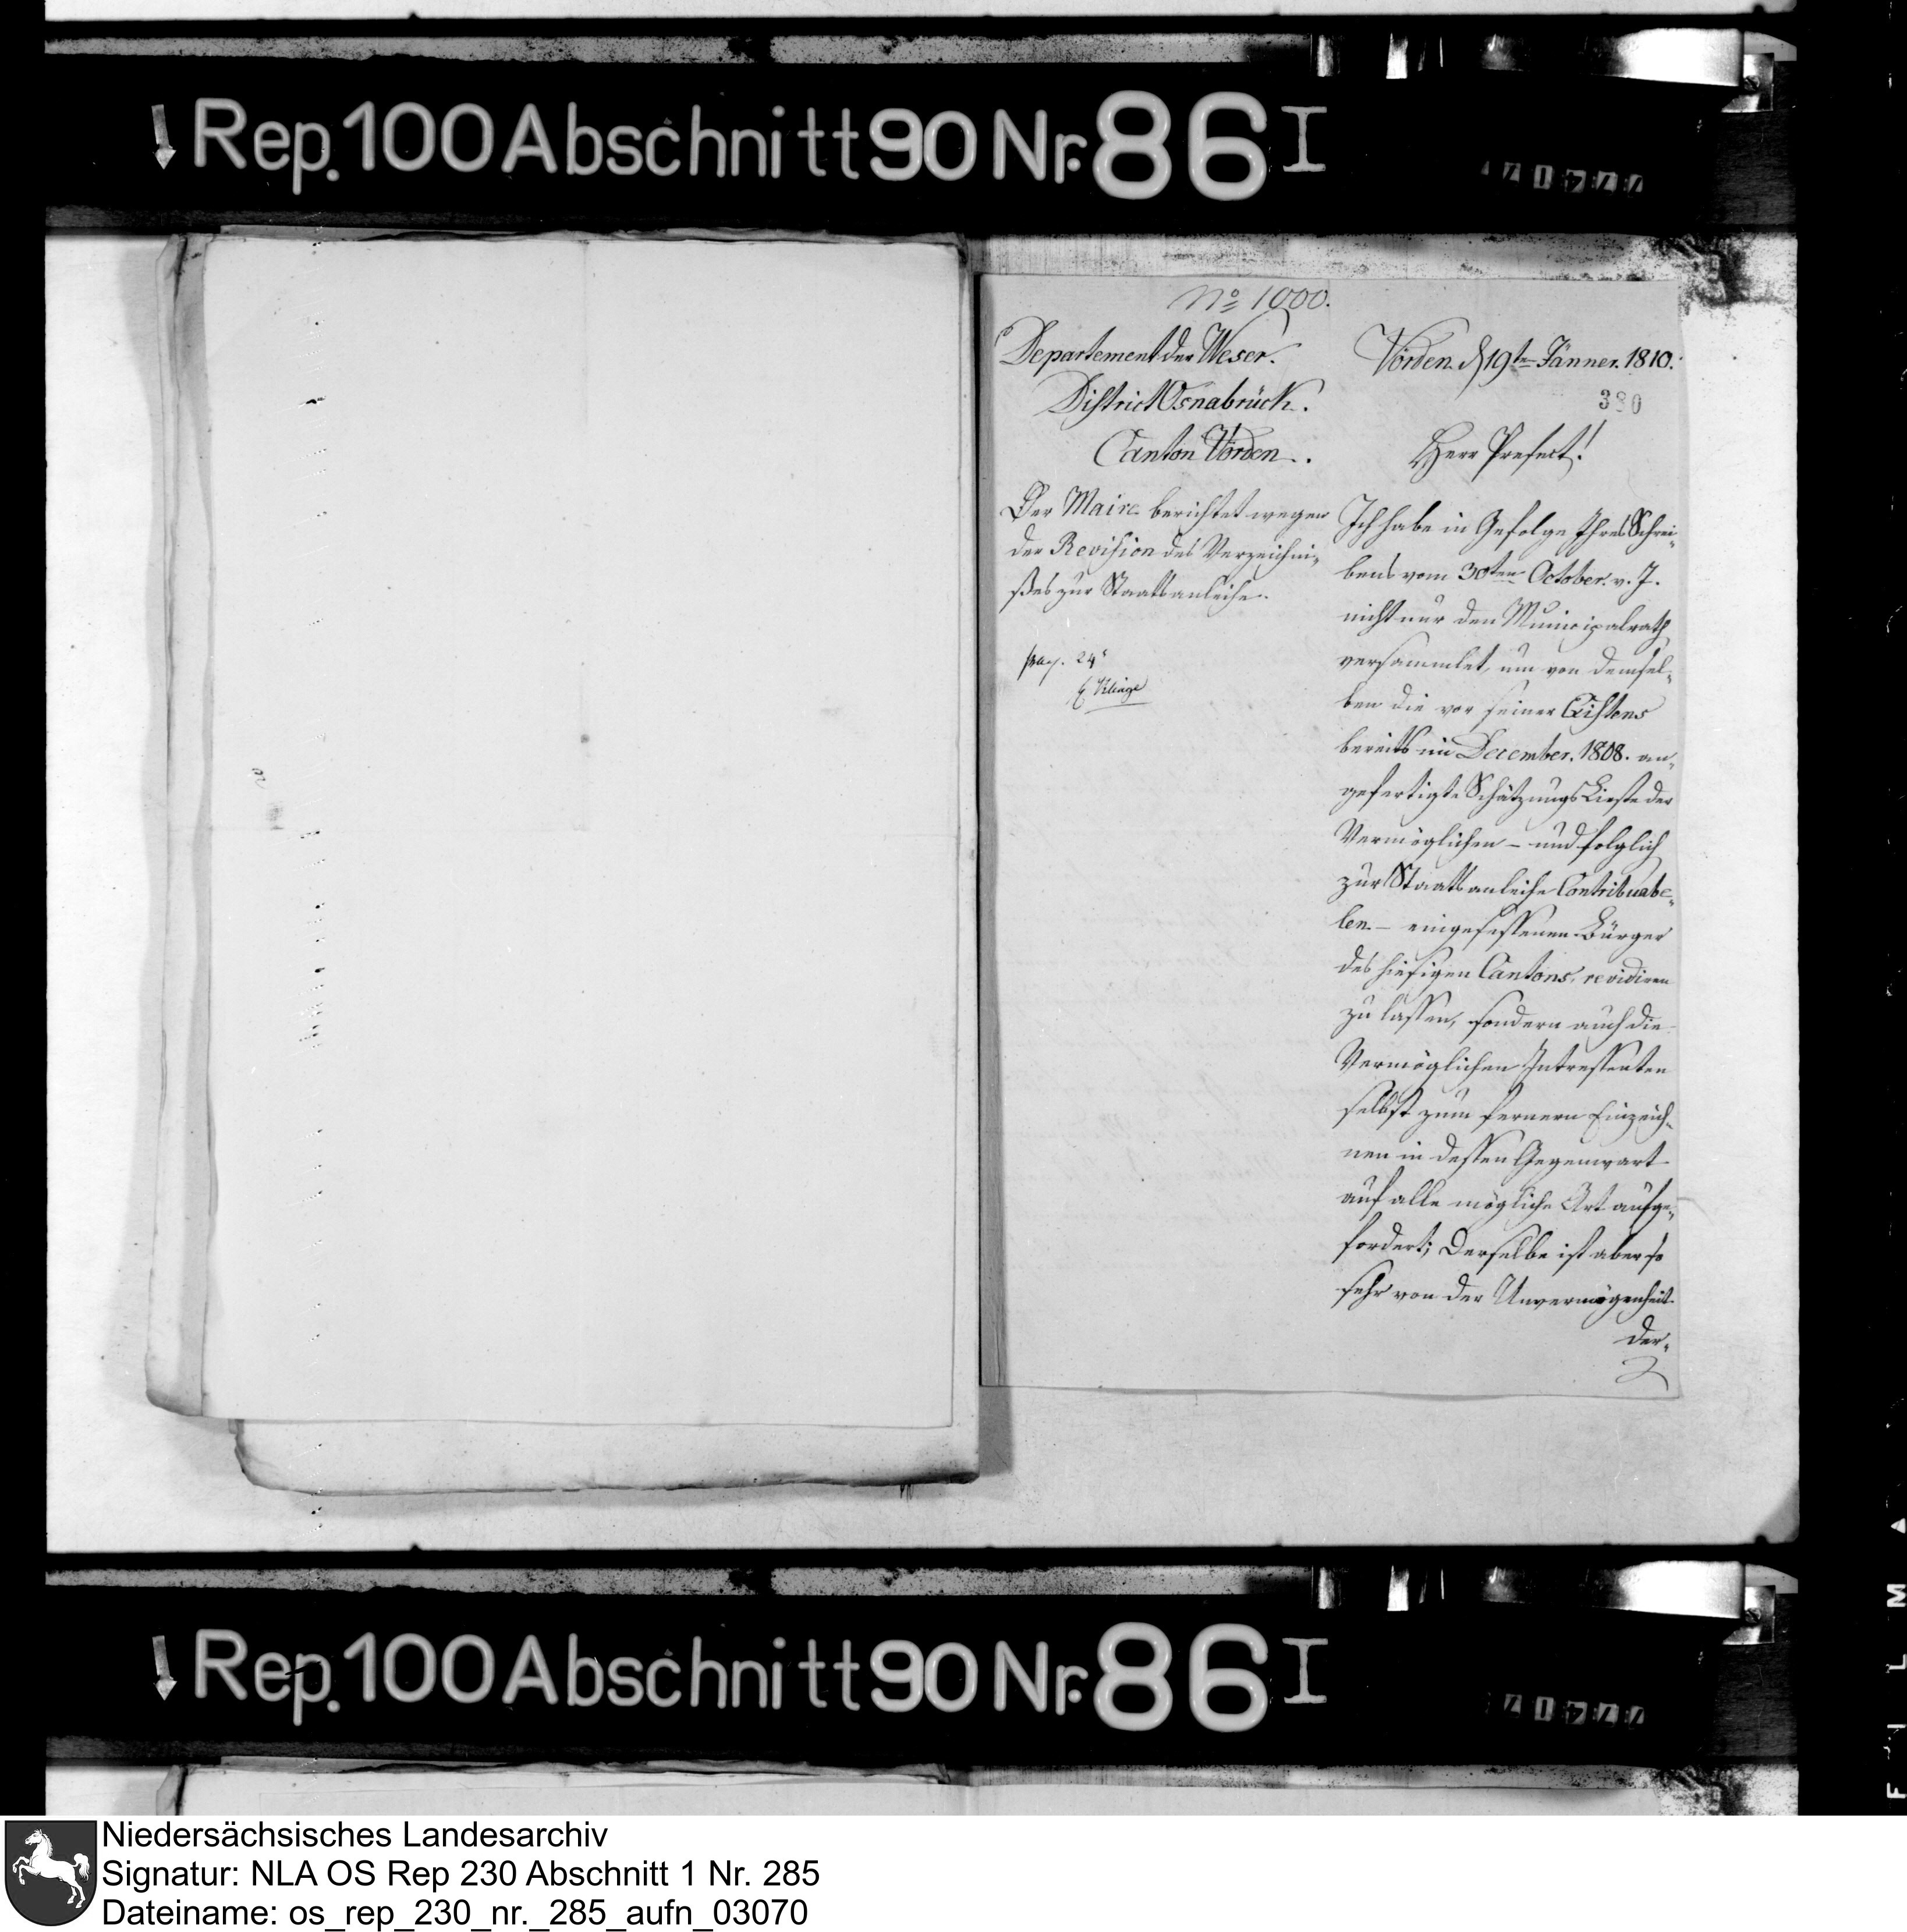 Rep. 100 Abschnitt 90 Nr. 86 I
No 1000.
Departement der Weser.
District Osnabrück.
Canton Vörden.
Der Maire berichtet wegen
der Revision des Verzeichni-
ßes zur Staatsanleihe.
24
Vörden d 19ten Jänner. 1810.
380
Herr Prefect!
Ich habe in Gefolge Ihres Schrei-
bens vom 30ten October v. J.
nicht nur den Municipalrath
versammlet, um von demsel-
ben die vor seiner Existens
bereits im December. 1808. an-
gefertigte Schätzungs Lieste der
Vermöglichen – und folglich
zur Staatsanleihe Contribuabe-
len – eingesessenen Bürger
des hiesigen Cantons, revidiren
zu lassen, sondern auch die
Vermöglichen Intressenten
selbst zum fernern Einzeich-
nen in dessen Gegenwart
auf alle mögliche Art aufge-
fordert; Derselbe ist aber so
sehr von der Unvermögenheit
der-
Rep. 100 Abschnitt 90 Nr. 86 I
FILM
Niedersächsisches Landesarchiv
Signatur: NLA OS Rep 230 Abschnitt 1 Nr. 285
Dateiname: os_rep_230_nr._285_aufn_03070